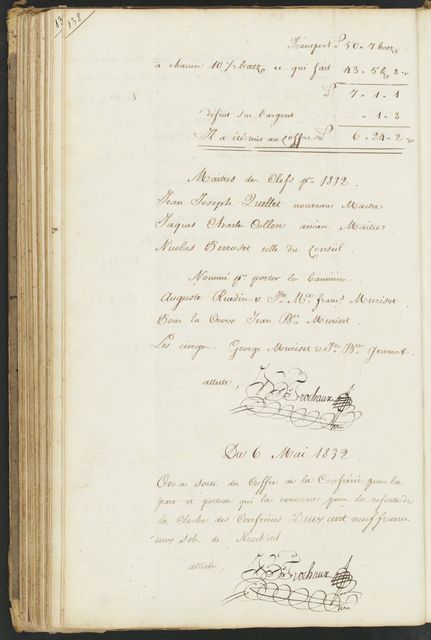 138
Transport L 50 " 7 batz
à chacun 10 1/2 batz ce qui fait 43 " 5 6 " 3
L 7 " 1 " 1
déficit sur l'argent " 1 " 3
Il a été mis au coffre L 6 " 24 " 2
Maitres des Clefs pr 1832
Jean Joseph Quellet nouveau Maitre
Jaques Charles Collon ancien Maitre
Nicolas Perroset celle du Conseil
Nommé pr porter la bannière
Auguste Ruedin & Jn Mce franç. Muriset
Pour la Croix Jean Bte Muriset
Les cierges George Muriset & Jn Bte Gunot
atteste,
Frochaux
Du 6 Mai 1832
On a sorti du Coffre de la Confrérie pour la
part et portion qui la concerne pour la refonte de
la Cloche des Confréries Deux cent neuf francs
deux sols de Neuchâtel
atteste,
Frochaux